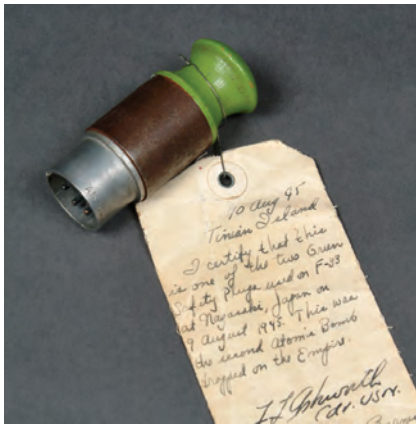 10 Aug 45
Tinian Island
I certify that this
is one of the two Green
Safety Plugs used on F-33
at Nagasaki, Japan on
9 August 1945. This was
the second Atomic Bomb
dropped on the Empire.
F L Ashworth
Cdr. USN.